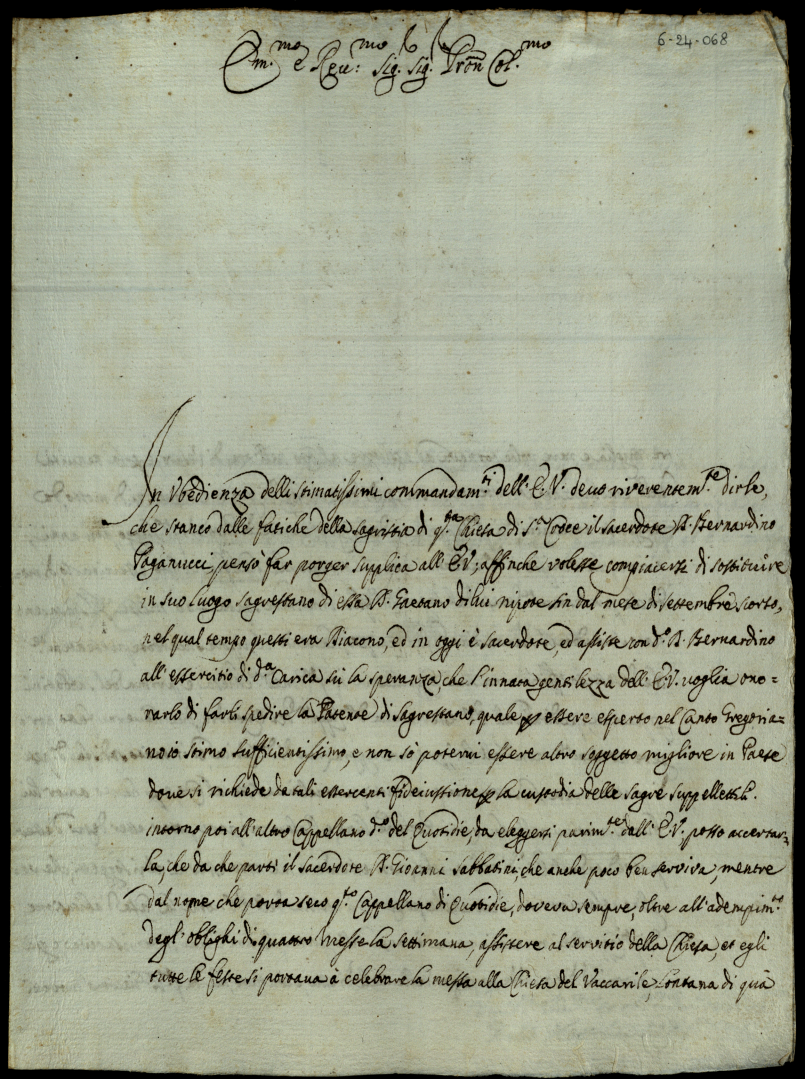 6-24-068
Em.mo e Reu:mo Sig. Sig. Pron Col.mo
In Vbedienza delli stimatissimi commandam.ti dell' E.V. deuo riverentem.te dirle,
che stanco dalle fatiche della sagristia di q.sta Chiesa di S.ta Croce il sacerdote D. Bernardino
Paganucci, pensò far porger supplica all' E.V., affinche volesse compiacersi di sostituire
in suo luogo sagrestano di essa D. Gaetano di lui nipote sin dal mese di settembre scorso,
nel qual tempo questi era Diacono, ed in oggi è sacerdote, ed assiste con d.o D. Bernardino
all' essercitio di d.a Carica sù la speranza, che l'innata gentilezza dell' E.V. uoglia ono-
rarlo di farli spedire la Patente di Sagrestano, quale per essere esperto nel Canto Gregoria-
no io stimo sufficientissimo, e non sò poterui essere altro soggetto migliore in Paese
doue si richiede da tali essercenti fideiussione per la custodia delle sagre suppellettili.
intorno poi all' altro Cappellano d.o del Quotidie, da eleggersi parim.te dall' E.V. posso accertar-
la, che da che parti il sacerdote D. Gioanni Sabbatini, che anche poco ben serviva, mentre
dal nome che porta seco q.to Cappellano di Quotidie, doveva sempre, oltre all' adempim.to
degl' oblighi di quattro messe la settimana, assistere al servitio della Chiesa, et egli
tutte le feste si portaua à celebrare la messa alla Chiesa del Vaccarile, lontana di quà